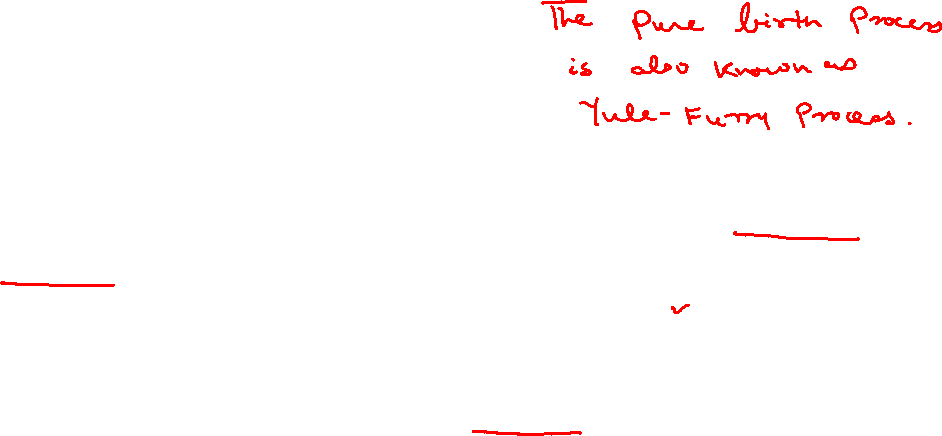 The Pure birth Process
is also known as
Yule-Furry Process.